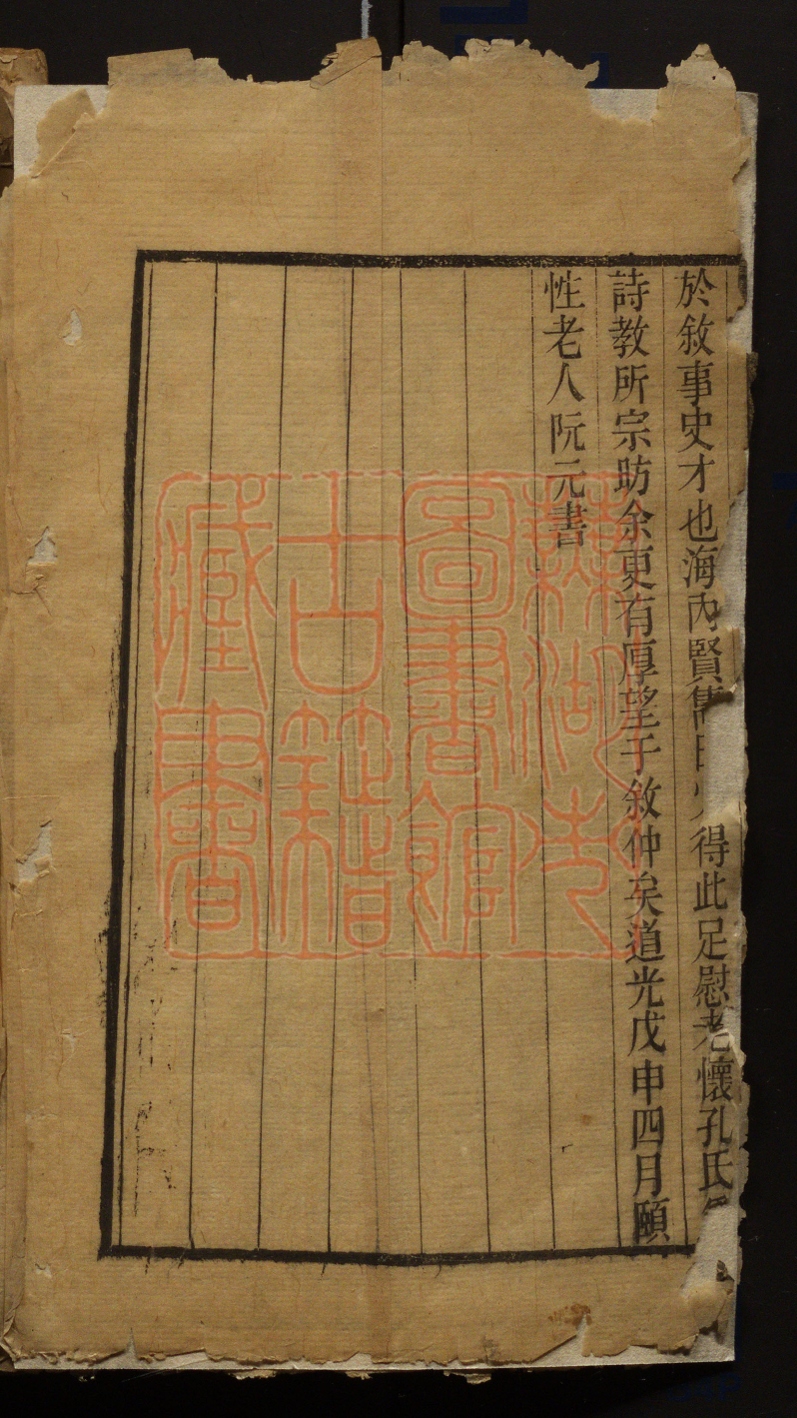 於敘事史才也海內賢得此足慰老懷孔氏
詩教所宗助余更有厚望于敘仲矣道光戊申四月頤
性老人阮元書
蕪湖市
圖書館
古籍
藏書